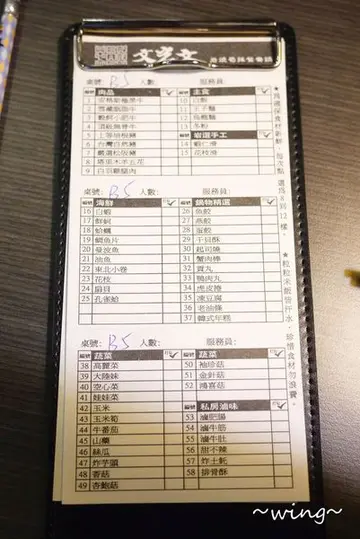 文字文
桌號: B5 人數: 服務員:
編號 肉品
1 安格斯極黑牛
2 雪藏翡脂牛
3 穀飼小肥牛
4 頂級無骨牛
5 上等培根豬
6 台灣自然豬
7 嚴選松阪豬
8 塔里木羊五花
9 白羽雞腿肉
編號 主食
10 白飯
11 王子麵
12 烏龍麵
13 冬粉
編號 岩選手工
14 蝦仁滑
15 花枝滑
桌號: B5 人數: 服務員:
編號 海鮮
16 白蝦
17 鮮蚵
18 蛤蠣
19 鯛魚片
20 曼波魚
21 油魚
22 東北小卷
23 花枝
24 扇貝
25 孔雀蛤
編號 鍋物精選
26 魚餃
27 燕餃
28 蛋餃
29 干貝酥
30 起司燒
31 蟹肉棒
32 貢丸
33 鴨肉丸
34 虎皮捲
35 凍豆腐
36 老油條
37 韓式年糕
桌號: B5 人數: 服務員:
編號 蔬菜
38 高麗菜
39 大陸妹
40 空心菜
41 娃娃菜
42 玉米
43 玉米筍
44 牛番茄
45 山藥
46 絲瓜
47 炸芋頭
48 香菇
49 杏鮑菇
編號 蔬菜
50 袖珍菇
51 金針菇
52 鴻喜菇
編號 私房滷味
53 滷肥腸
54 滷牛筋
55 滷牛肚
56 甜不辣
57 炸土魠
58 排骨酥
★粒粒米飯皆汗水,珍惜食材勿浪費。
~wing~